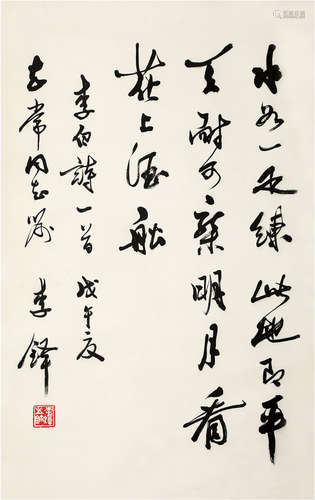 水如一疋練此地即平
天耐可乘明月看
花上酒船
李白詩一首 戊午夏
常同志屬 李鐸